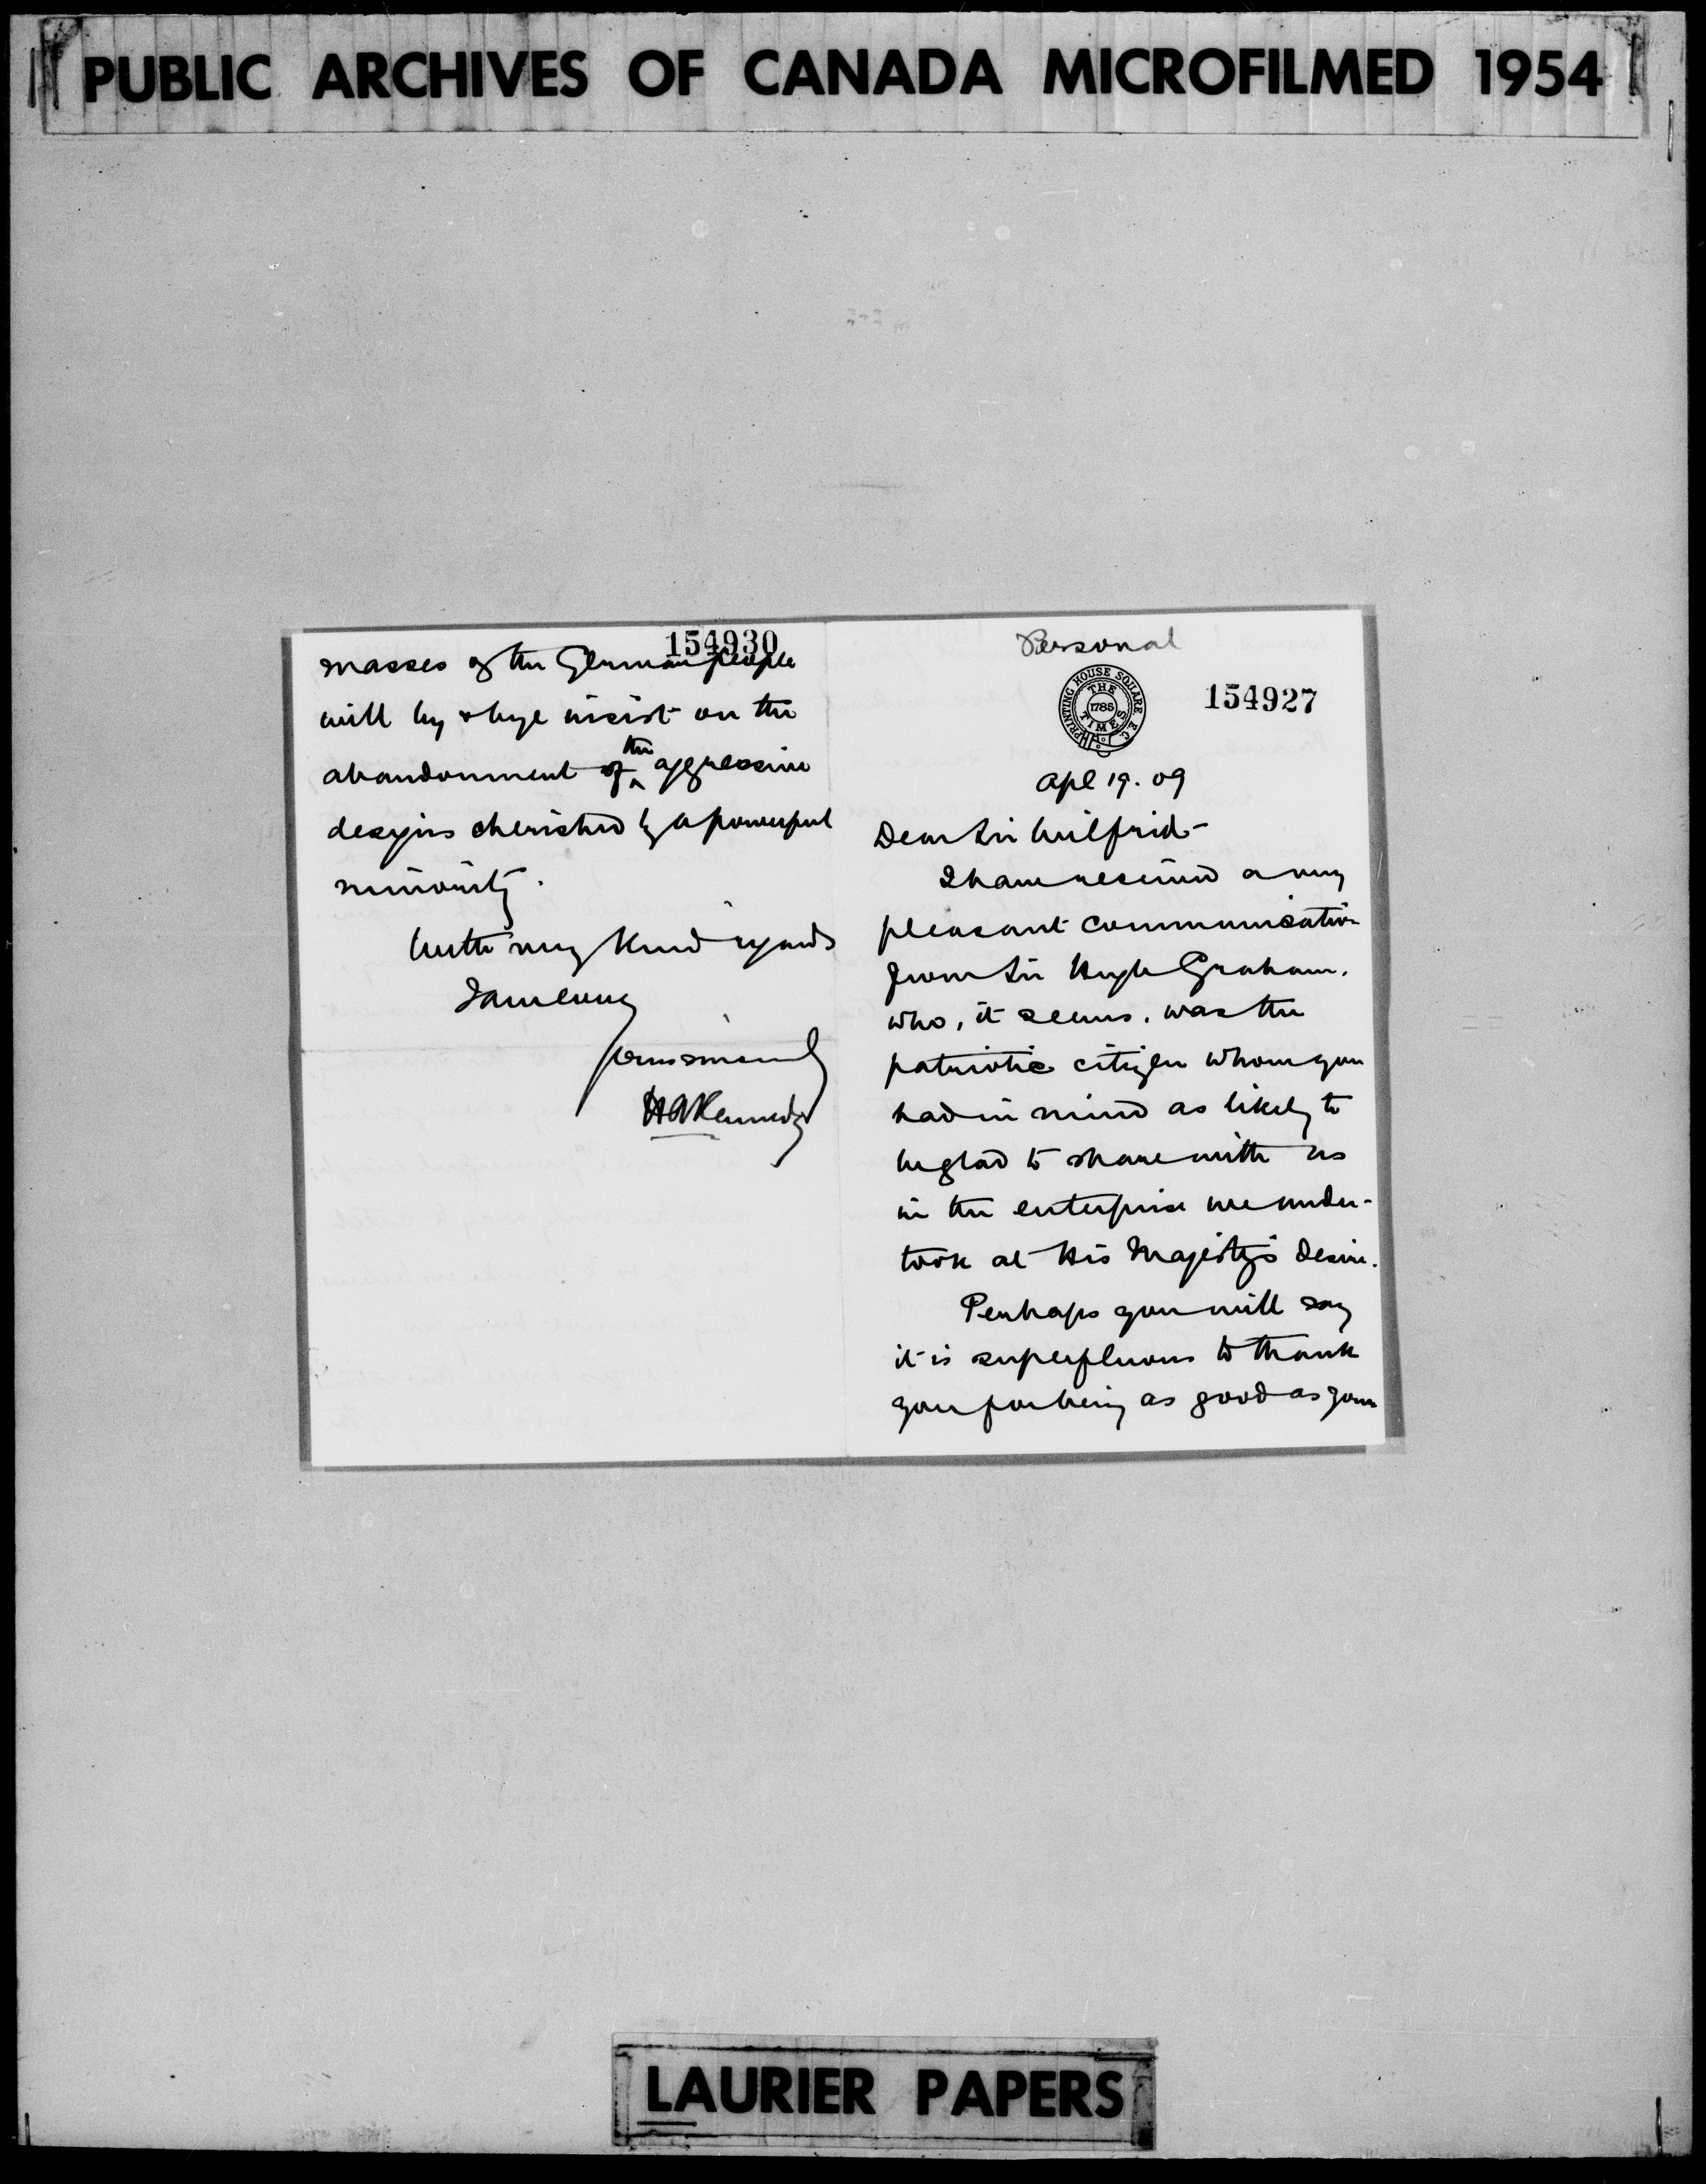 PUBLIC ARCHIVES OF CANADA MICROFILMED 1954
154930
masses of the German people
will by & bye insist on the
abandonment of the aggressive
designs cherished by a powerful
minority.
With very kind regards
I am always
yours sincerely
H A Kennedy
Personal
PRINTING HOUSE SQUARE E.C.
THE
1785
TIMES
154927
Apl 19. 09
Dear Sir Wilfrid-
I have received a very
pleasant communication
from Sir Hugh Graham,
who, it seems, was the
patriotic citizen whom you
had in mind as likely to
be glad to share with us
in the enterprise we under-
took at His Majesty's desire.
Perhaps you will say
it is superfluous to thank
you for being as good as your
LAURIER PAPERS